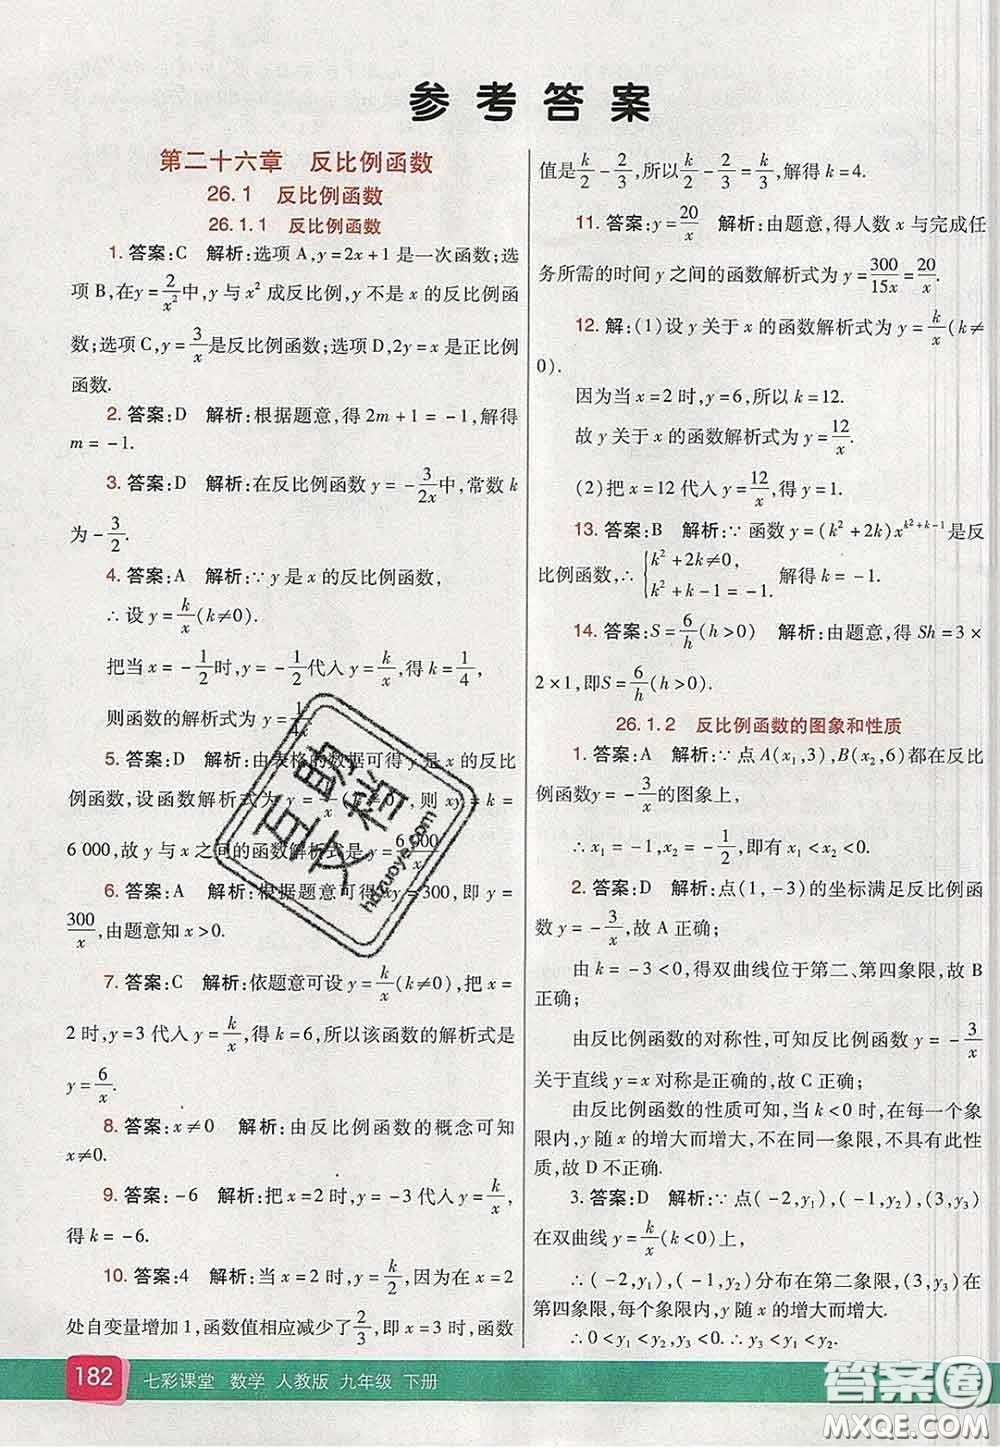 参考答案
第二十六章 反比例函数
26.1 反比例函数
26.1.1 反比例函数
1. 答案:C 解析:选项A,y=2x+1是一次函数;选
项B,在y=2/x²中,y与x²成反比例,y不是x的反比例函
数;选项C,y=3/x是反比例函数;选项D,2y=x是正比例
函数.
2. 答案:D 解析:根据题意,得2m+1=-1,解得
m=-1.
3. 答案:D 解析:在反比例函数y=-3/2x中,常数k
为-3/2.
4. 答案:A 解析:∵y是x的反比例函数,
∴设y=k/x(k≠0).
把当x=-1/2时,y=-1/2代入y=k/x,得k=1/4,
则函数的解析式为y=1/4x.
5. 答案:D 解析:由表格的数据可得y是x的反比
例函数,设函数解析式为y=k/x(k≠0),则xy=k=
6 000,故y与x之间的函数解析式是y=6 000/x.
6. 答案:A 解析:根据题意可得xy=300,即y=
300/x,由题意知x>0.
7. 答案:C 解析:依题意可设y=k/x(k≠0),把x=
2时,y=3代入y=k/x,得k=6,所以该函数的解析式是
y=6/x.
8. 答案:x≠0 解析:由反比例函数的概念可知
x≠0.
9. 答案:-6 解析:把x=2,y=-3代入y=k/x,
得k=-6.
10. 答案:4 解析:当x=2时,y=k/2,因为在x=2
处自变量增加1,函数值相应减少了2/3,即x=3时,函数
值是k/2-2/3,所以k/2-2/3=k/3,解得k=4.
11. 答案:y=20/x 解析:由题意,得人数x与完成任
务所需的时间y之间的函数解析式为y=300/15x=20/x.
12. 解:(1)设y关于x的函数解析式为y=k/x(k≠
0).
因为当x=2时,y=6,所以k=12.
故y关于x的函数解析式为y=12/x.
(2)把x=12代入y=12/x,得y=1.
13. 答案:B 解析:∵函数y=(k²+2k)x^(k²+k-1)是反
比例函数,∴{k²+2k≠0,
k²+k-1=-1, 解得k=-1.
14. 答案:S=6/h(h>0) 解析:由题意,得Sh=3×
2×1,即S=6/h(h>0).
26.1.2 反比例函数的图象和性质
1. 答案:A 解析:∵点A(x₁,3),B(x₂,6)都在反比
例函数y=-3/x的图象上,
∴x₁=-1,x₂=-1/2,即有x₁<x₂<0.
2. 答案:D 解析:点(1,-3)的坐标满足反比例函
数y=-3/x,故A正确;
由k=-3<0,得双曲线位于第二、第四象限,故B
正确;
由反比例函数的对称性,可知反比例函数y=-3/x
关于直线y=x对称是正确的,故C正确;
由反比例函数的性质可知,当k<0时,在每一个象
限内,y随x的增大而增大,不在同一象限,不具有此性
质,故D不正确.
3. 答案:D 解析:∵点(-2,y₁),(-1,y₂),(3,y₃)
在双曲线y=k/x(k<0)上,
∴(-2,y₁),(-1,y₂)分布在第二象限,(3,y₃)在
第四象限,每个象限内,y随x的增大而增大.
∴0<y₁<y₂,y₃<0.∴y₃<y₁<y₂.
182 七彩课堂 数学 人教版 九年级 下册
互助文档
hdzuoye.com
答案圈
MXQE.COM